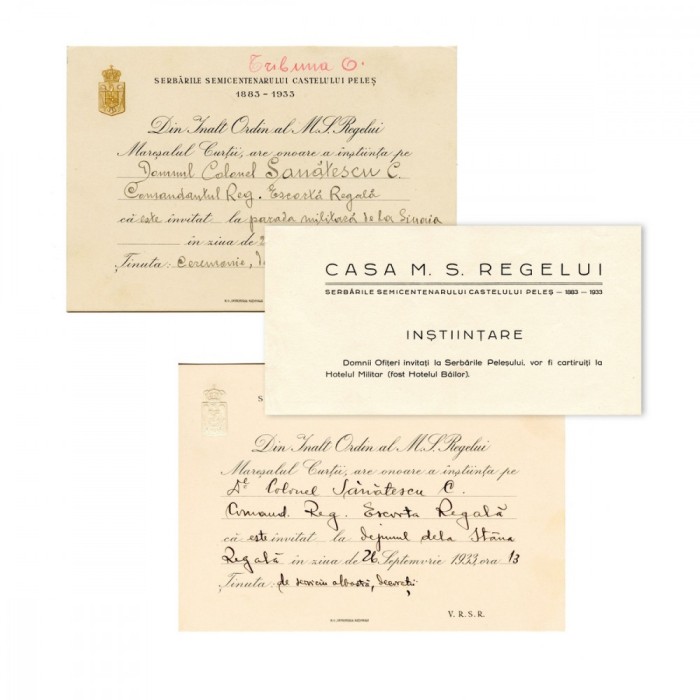 Tribuna O.
SERBĂRILE SEMICENTENARULUI CASTELULUI PELEȘ
1883 - 1933
Din Înalt Ordin al M.S. Regelui
Mareșalul Curții, are onoare a înștiința pe
Domnul Colonel Sănătescu C.
Comandantul Reg. Escortă Regală
că este invitat la parada militară de la Sinaia
în ziua de 2
Ținuta: Ceremonie, de
CASA M. S. REGELUI
SERBĂRILE SEMICENTENARULUI CASTELULUI PELEȘ — 1883 — 1933
INȘTIINȚARE
Domnii Ofițeri invitați la Serbările Peleșului, vor fi cartiruiți la
Hotelul Militar (fost Hotelul Băilor).
S
Din Înalt Ordin al M.S. Regelui
Mareșalul Curții, are onoare a înștiința pe
Dl Colonel Sănătescu C.
Comand. Reg. Escorta Regală
că este invitat la dejunul dela Stâna
Regală în ziua de 26 Septemvrie 1933 ora 13
Ținuta: de serviciu albastă, decorații
V. R. S. R.